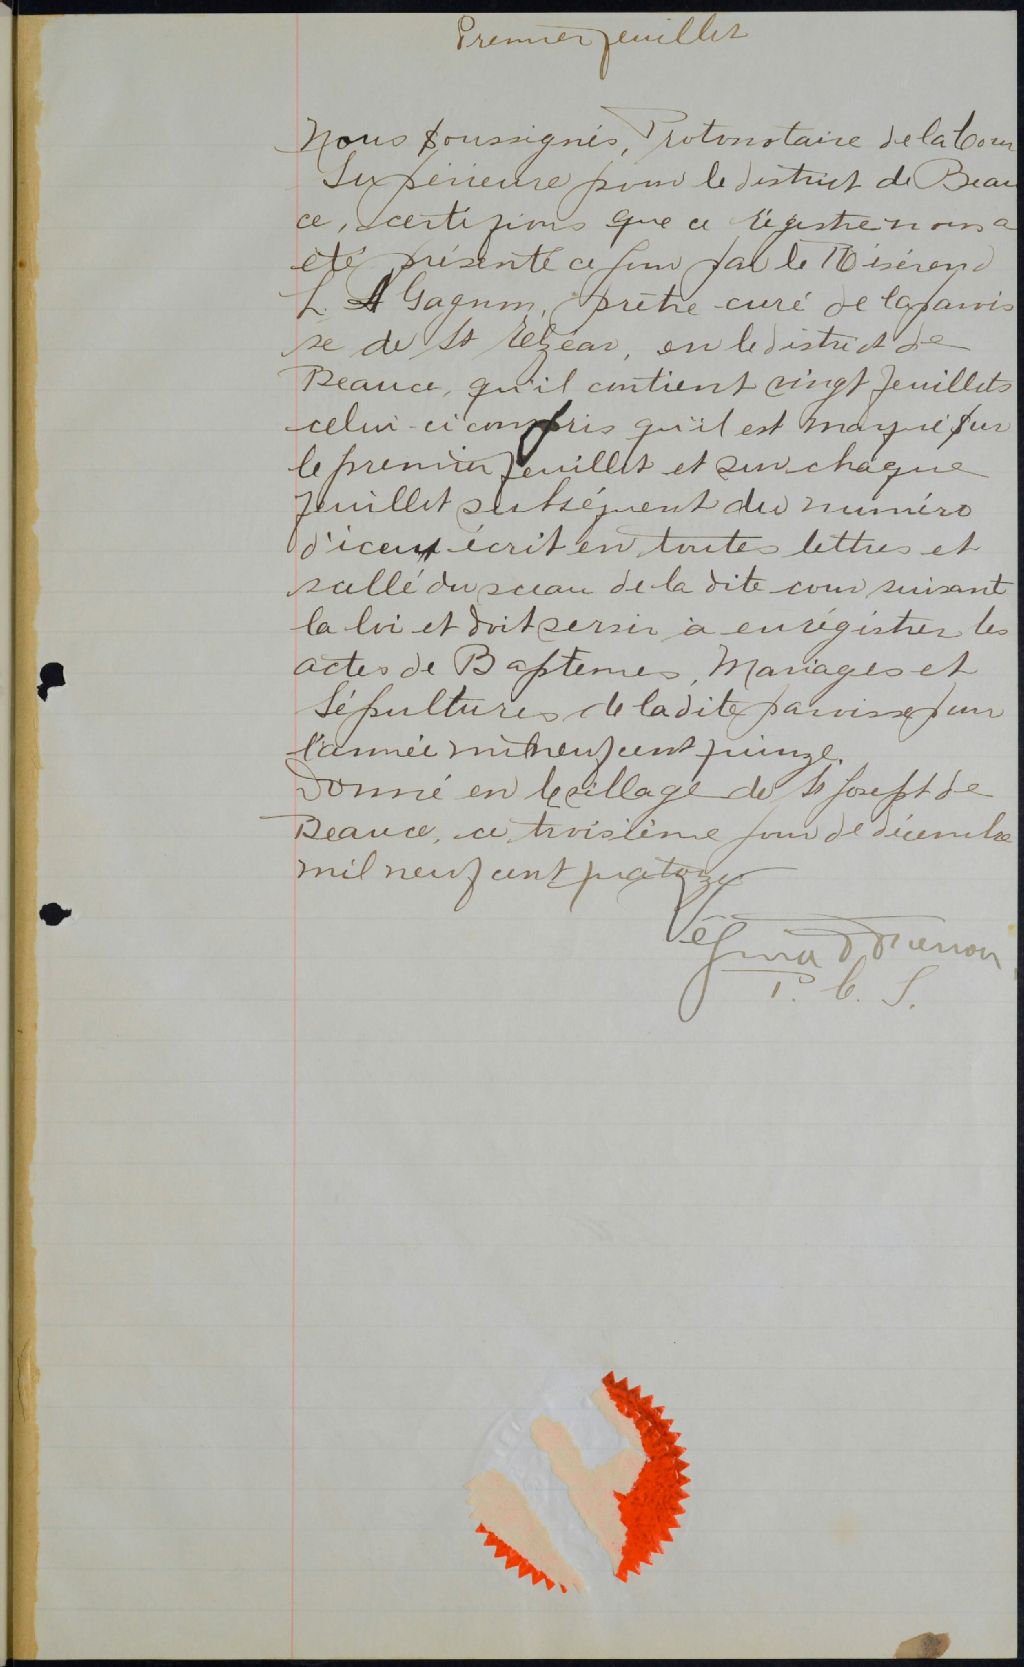 Premier feuillet
Nous Soussignés, Protonotaire de la Cour
Supérieure pour le district de Beau
ce, certifions que ce régistre nous a
été présenté ce jour par le Révérend
L. A Gagnon, prêtre curé de la parois
se de St Elzéar, en le district de
Beauce, qu'il contient vingt feuillets
celui-ci compris qu'il est marqué sur
le premier feuillet et sur chaque
feuillet subséquent du numéro
d'iceux écrit en toutes lettres et
scellé du sceau de la dite cour suivant
la loi et doit servir à enrégistrer les
actes de Baptemes, Mariages et
Sépultures de la dite paroisse pour
l'année mil neuf cent quinze.
Donné en le village de St Joseph de
Beauce, ce troisième jour de décembre
mil neuf cent quatorze
P. C. S.